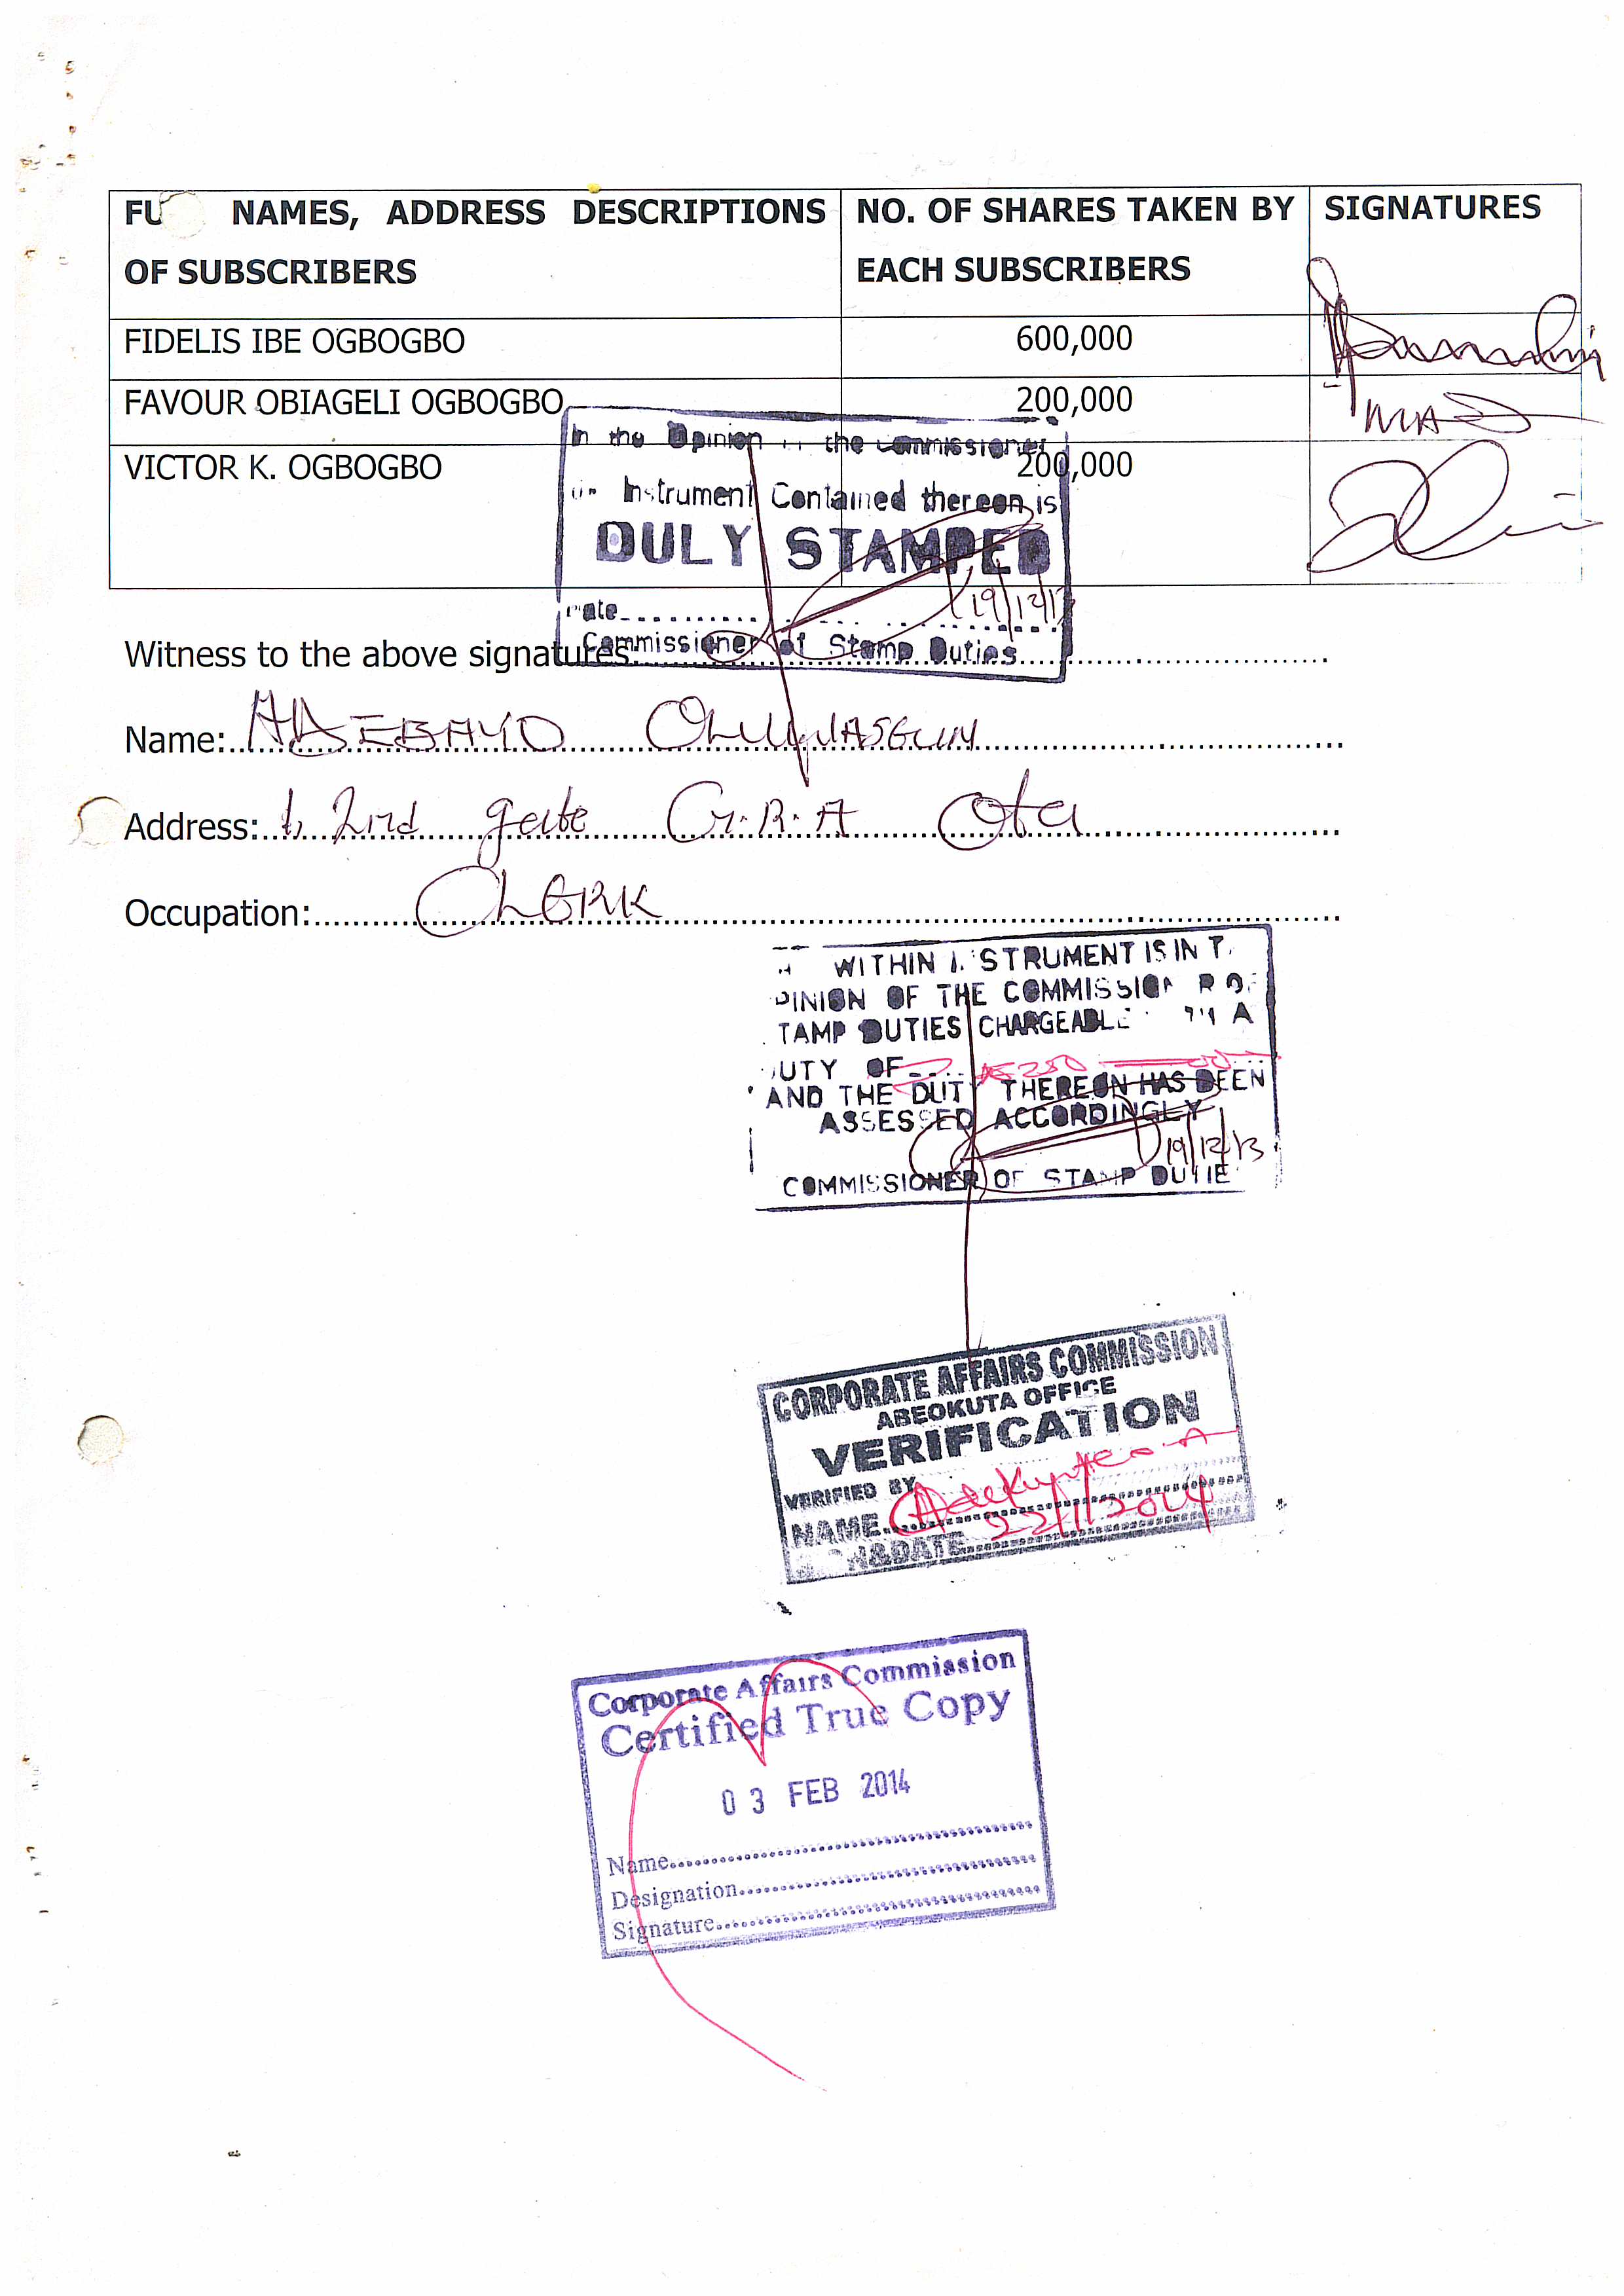 FU NAMES, ADDRESS DESCRIPTIONS OF SUBSCRIBERS
NO. OF SHARES TAKEN BY EACH SUBSCRIBERS
SIGNATURES
FIDELIS IBE OGBOGBO 600,000
FAVOUR OBIAGELI OGBOGBO 200,000
VICTOR K. OGBOGBO 200,000
In the Opinion the Commissioner
Instrument Contained thereon is
DULY STAMPED
19/12/13
Commissioner of Stamp Duties
Witness to the above signatures:
Name: ADEBAYO OLUWASEGUN
Address: 1, 2nd gate G.R.A Ota
Occupation: CLERK
WITHIN I STRUMENT IS IN T
PINION OF THE COMMISSION R OF
TAMP DUTIES CHARGEABLE A
UTY OF
AND THE DUT THEREON HAS BEEN
ASSESSED ACCORDINGLY
19/12/13
COMMISSIONER OF STAMP DUTIE
CORPORATE AFFAIRS COMMISSION
ABEOKUTA OFFICE
VERIFICATION
VERIFIED BY
NAME
N&DATE 22/1/2014
Corporate Affairs Commission
Certified True Copy
03 FEB 2014
Name
Designation
Signature